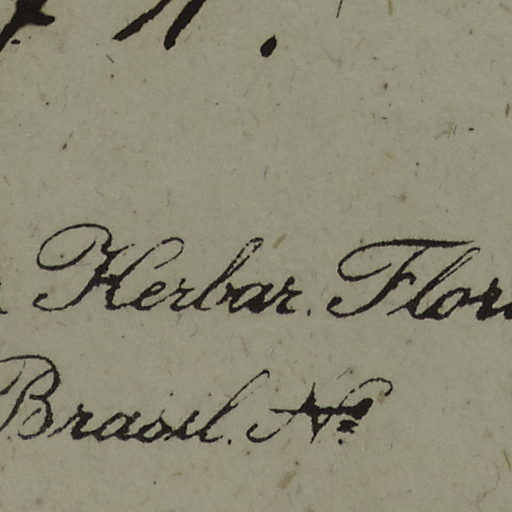 Herbar. Flor
Brasil. No